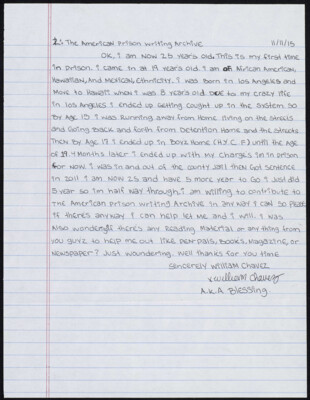 2.) The American Prison Writing Archive 11/11/15
OK, I am Now 25 years old. This is my first time
in prison. I came in at 19 years old. I am African American,
Hawaiian, And Mexican Ethnicity. I was Born in Los Angeles and
Move to Hawaii when I was 8 years old DUE to my crazy life
in Los Angeles I ended up getting caught up in the system. So
By Age 13 I was Running away from Home living on the streets
and Going Back and forth from Detention Home and the streets.
Then By Age 17 I ended up in Boys Home (H.Y.C.F) until the age
of 19. 4 Months later I ended up with my charges in in prison
for Now. I was in and out of the county Jail then Got Sentence
in 2011 I am Now 25 and have 5 more year to Go I Just did
5 year so Im half way through. I am willing to contribute to
the American prison writing Archive in any way I can so Please
if there's anyway I can help let me and I will. I was
Also wondering there's any Reading Material or any thing from
you guyz to help me out like pen-pals, Books, Magazine, or
Newspaper? Just woundering. Well thanks for you time
Sincerely William Chavez
x William Chavez
A.K.A Blessing